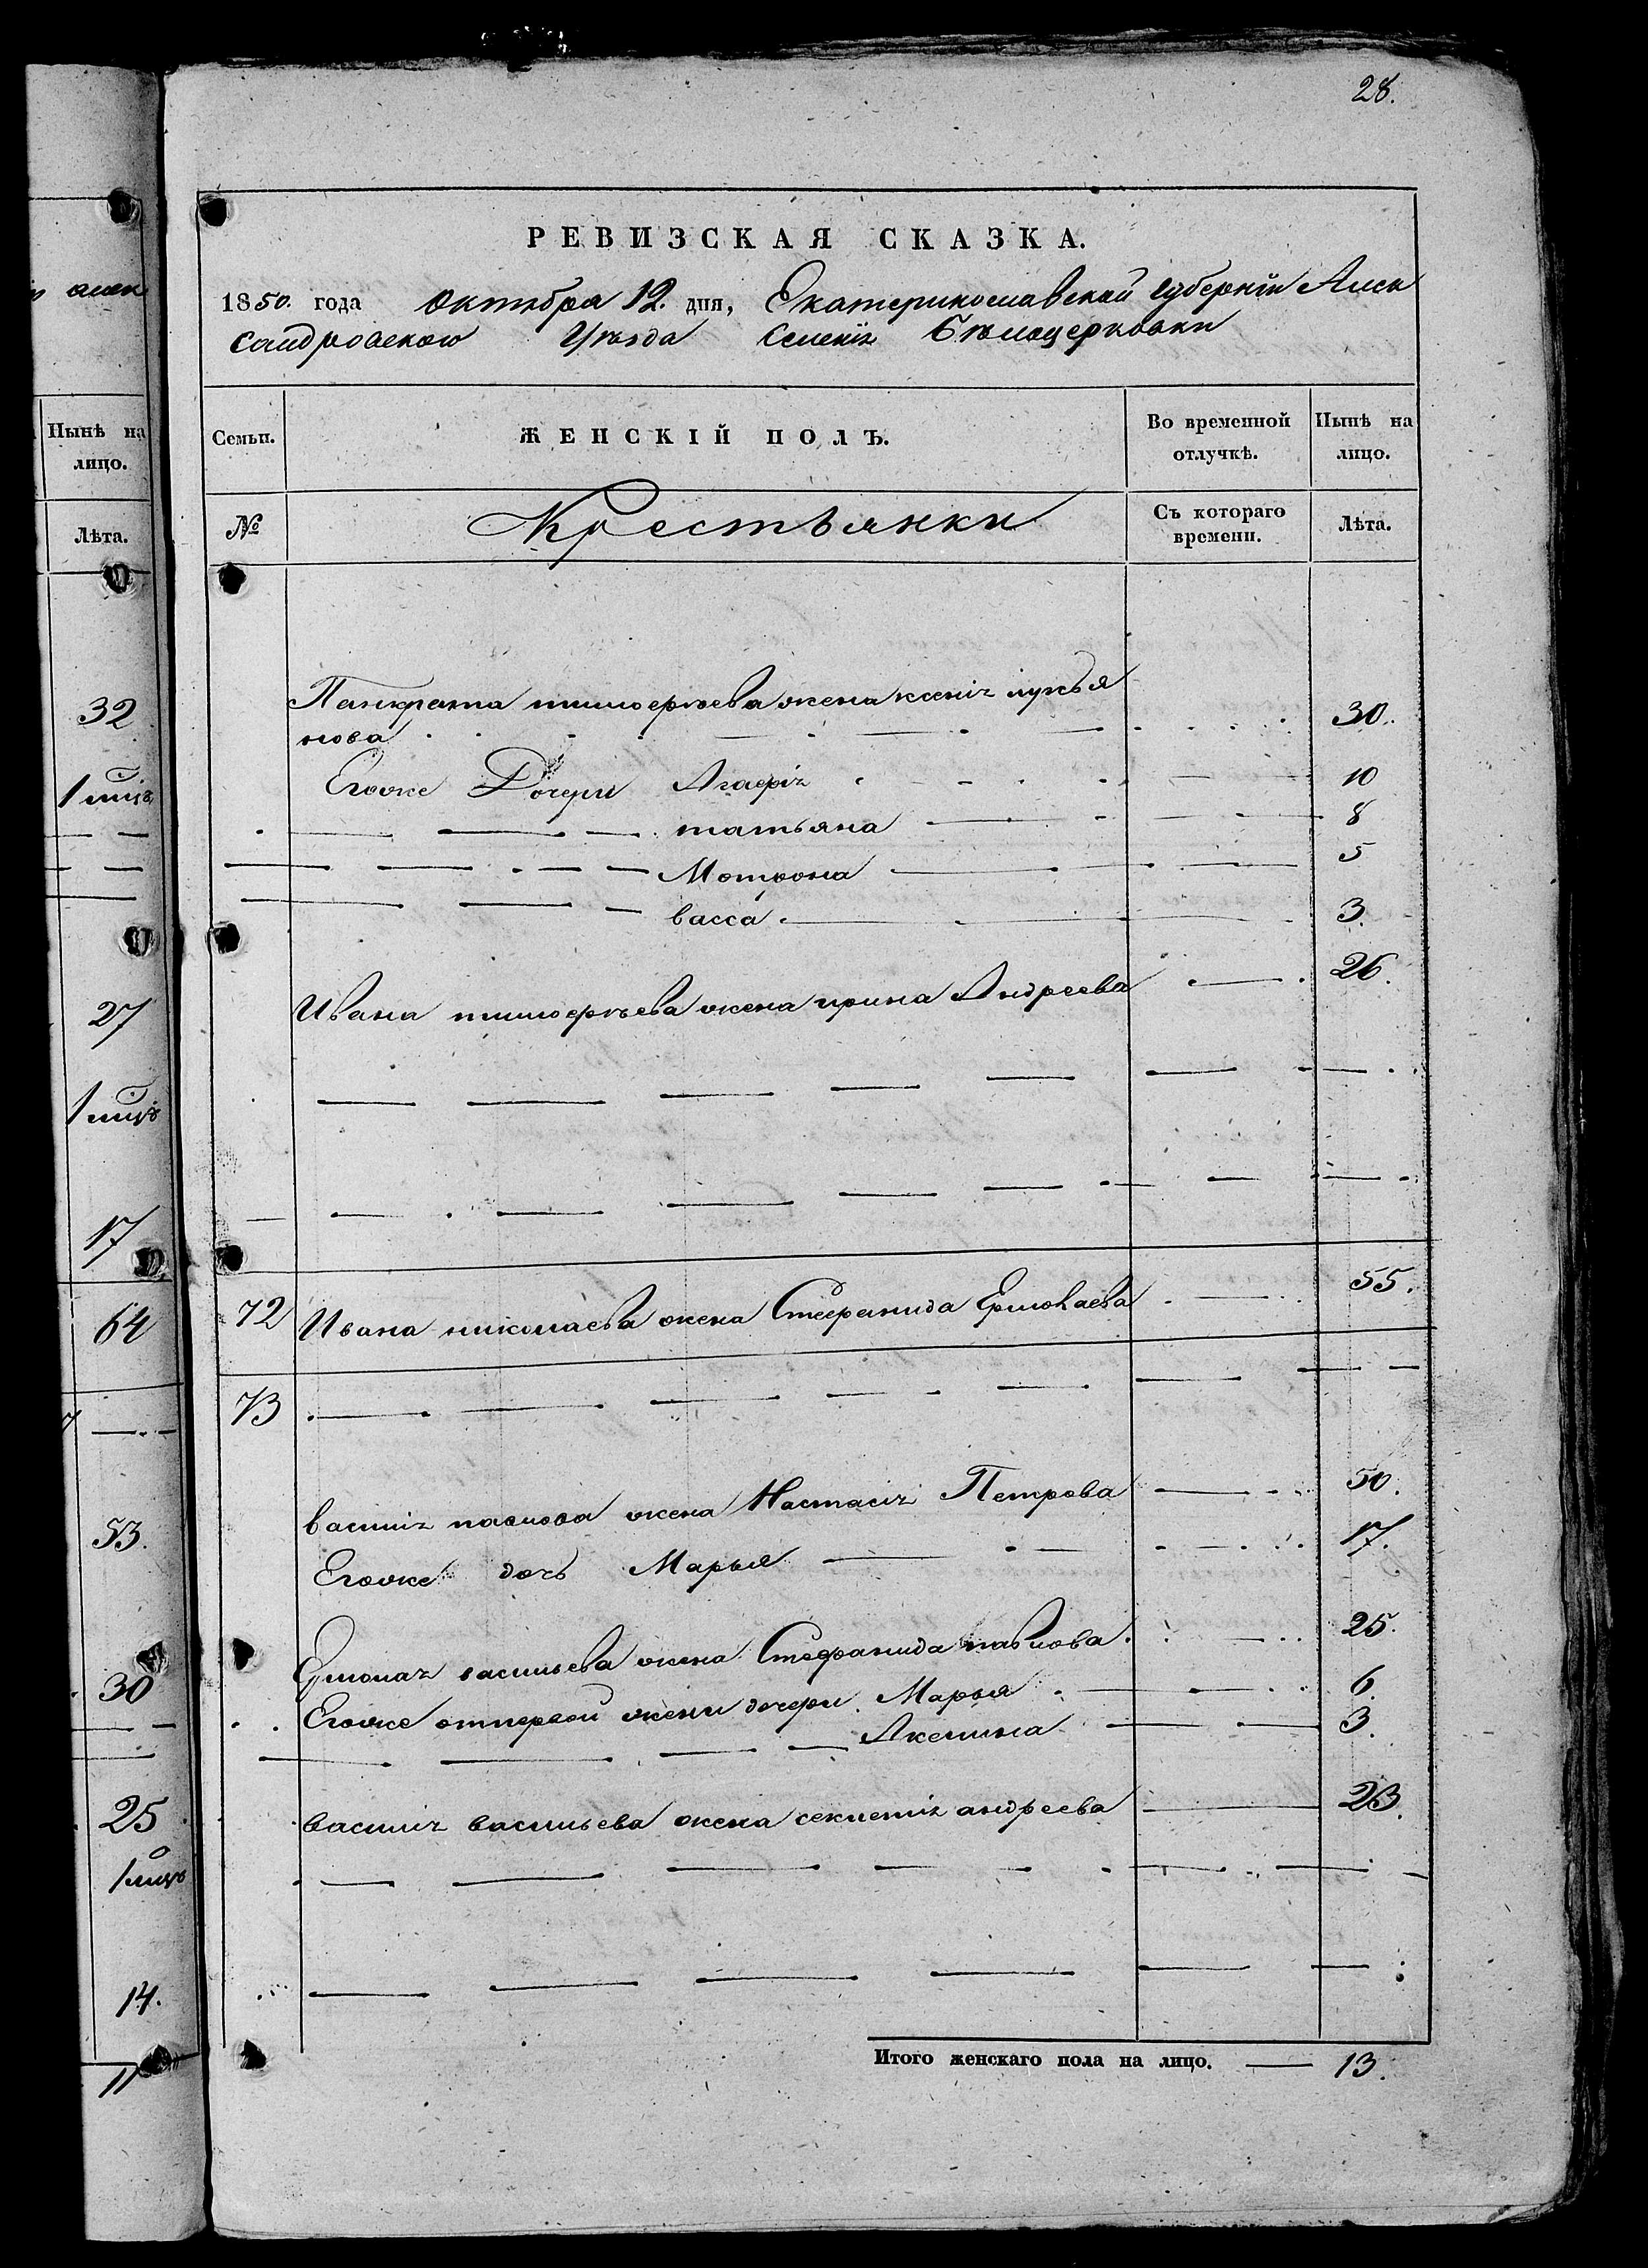 28.
РЕВИЗСКАЯ СКАЗКА.
1850. года Октября 12. дня, Екатеринославской губернiи Алек
сандровскаго Уѣзда Селенiя Бѣлоцерковки
Нынѣ на лицо.
Лѣта.
32
1 мцъ
27
1 мцъ
17
64
53.
30
25
1 мцъ
14.
11
Семьи. ЖЕНСКIЙ ПОЛЪ. Во временной отлучкѣ. Нынѣ на лицо.
№ Крестьянки Съ котораго времени. Лѣта.
Панкрата тимофеѣева жена ксенiя лукья
нова 30.
Егоже Дочери Агафiя 10
татьяна 8
Мотрона 5
васса 3.
Ивана тимофеѣева жена ирина Андреева 26.
72 Ивана николаева жена Стефанида Ермолаева 55.
73
василiя павлова жена Настасiя Петрова 50.
Егоже дочь Марья 17.
Ермолая васильева жена Стефанида павлова. 25.
Егоже отпервой жены дочери Марья 6.
Акелина 3.
василiя васильева жена секлетiя андреева 23.
Итого женскаго пола на лицо. 13.